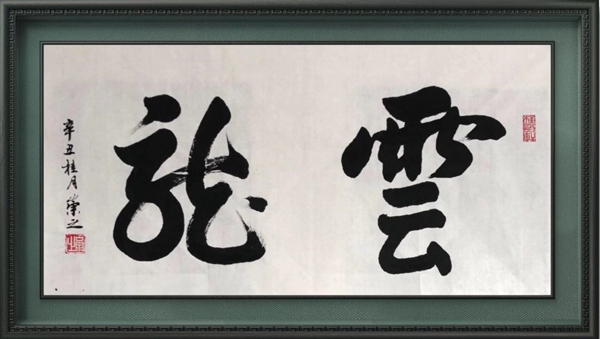 雲龍
辛丑桂月榮之